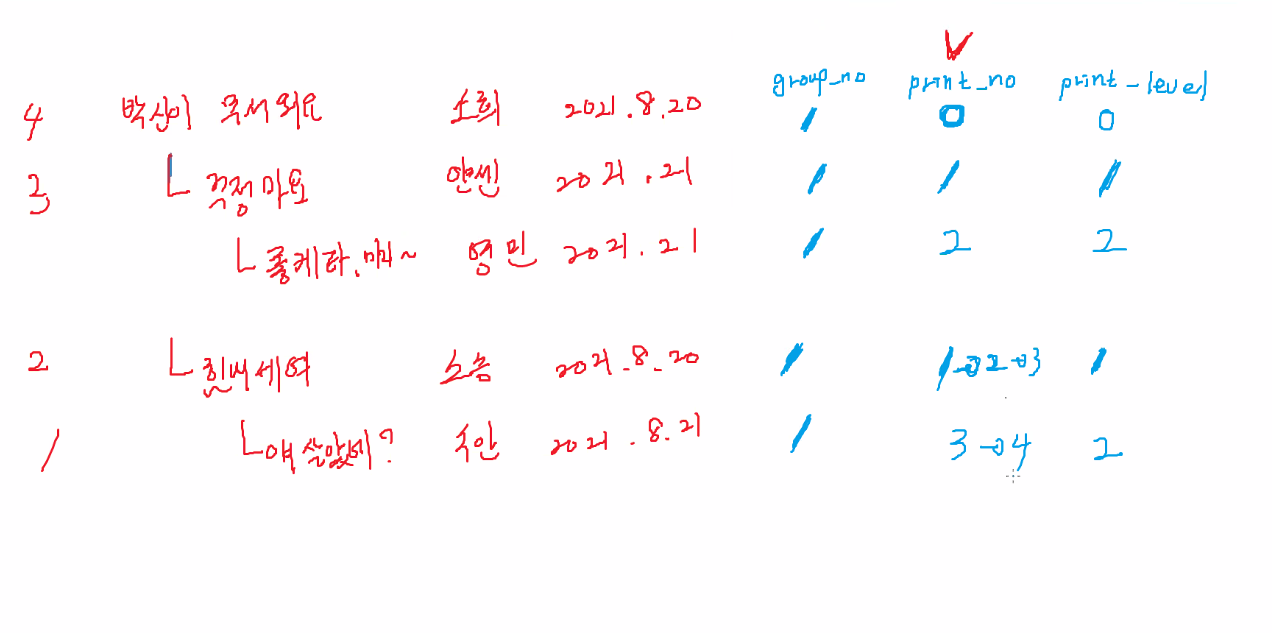 group_no print_no print_level
4 박신이 무서워요 소희 2021.8.20 1 0 0
3 ㄴ걱정마요 안센 2021.21 1 1 1
ㄴ품케라.마리~ 영민 2021.21 1 2 2
2 ㄴ힘내세여 소송 2021.8.20 1 1→2→3 1
1 ㄴ여 2021.8.21 1 3→4 2